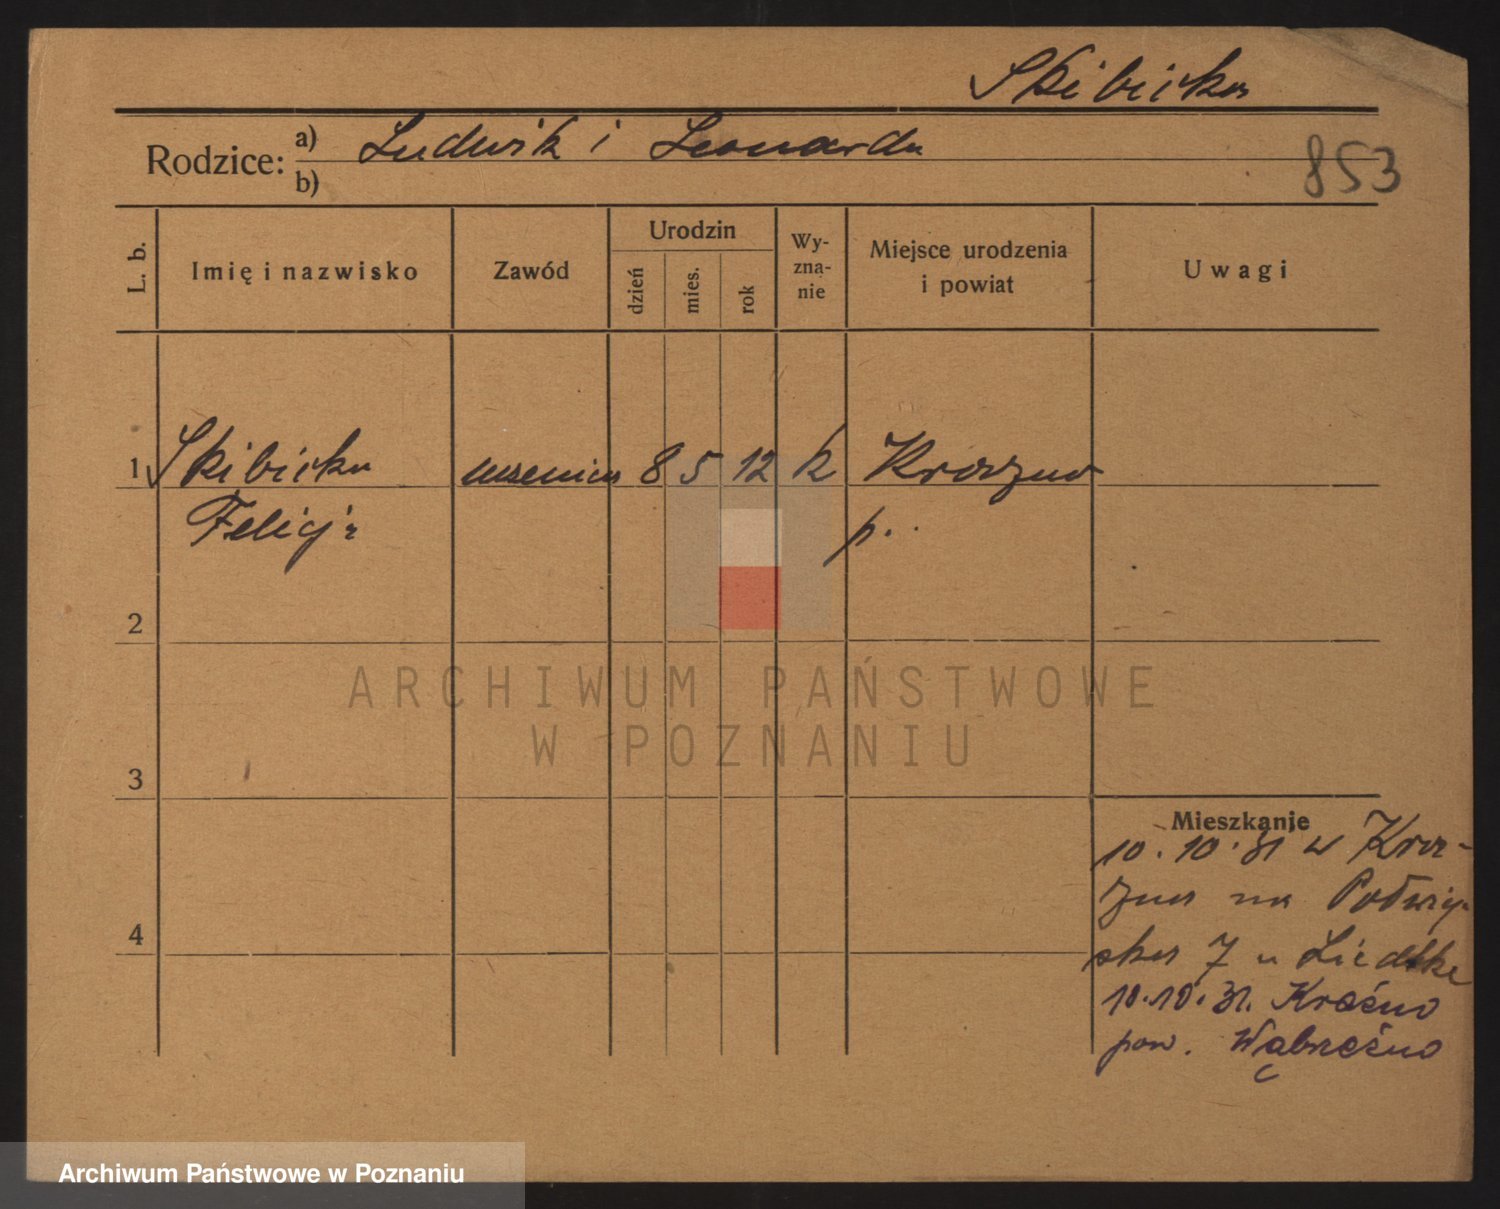 Skibicka
Rodzice: a) Ludwik i Leonarda
b)
853
L. b.
Imię i nazwisko
Zawód
Urodzin
dzień
mies.
rok
Wy-
zna-
nie
Miejsce urodzenia
i powiat
Uwagi
1 Skibicka uczenica 8 5 12 k
Felicja p.
2
3
4
Mieszkanie
10.10.31 w
na
7 u Liedtke
10.10.31.
pow. Wąbrzeźno
ARCHIWUM PAŃSTWOWE
W POZNANIU
Archiwum Państwowe w Poznaniu